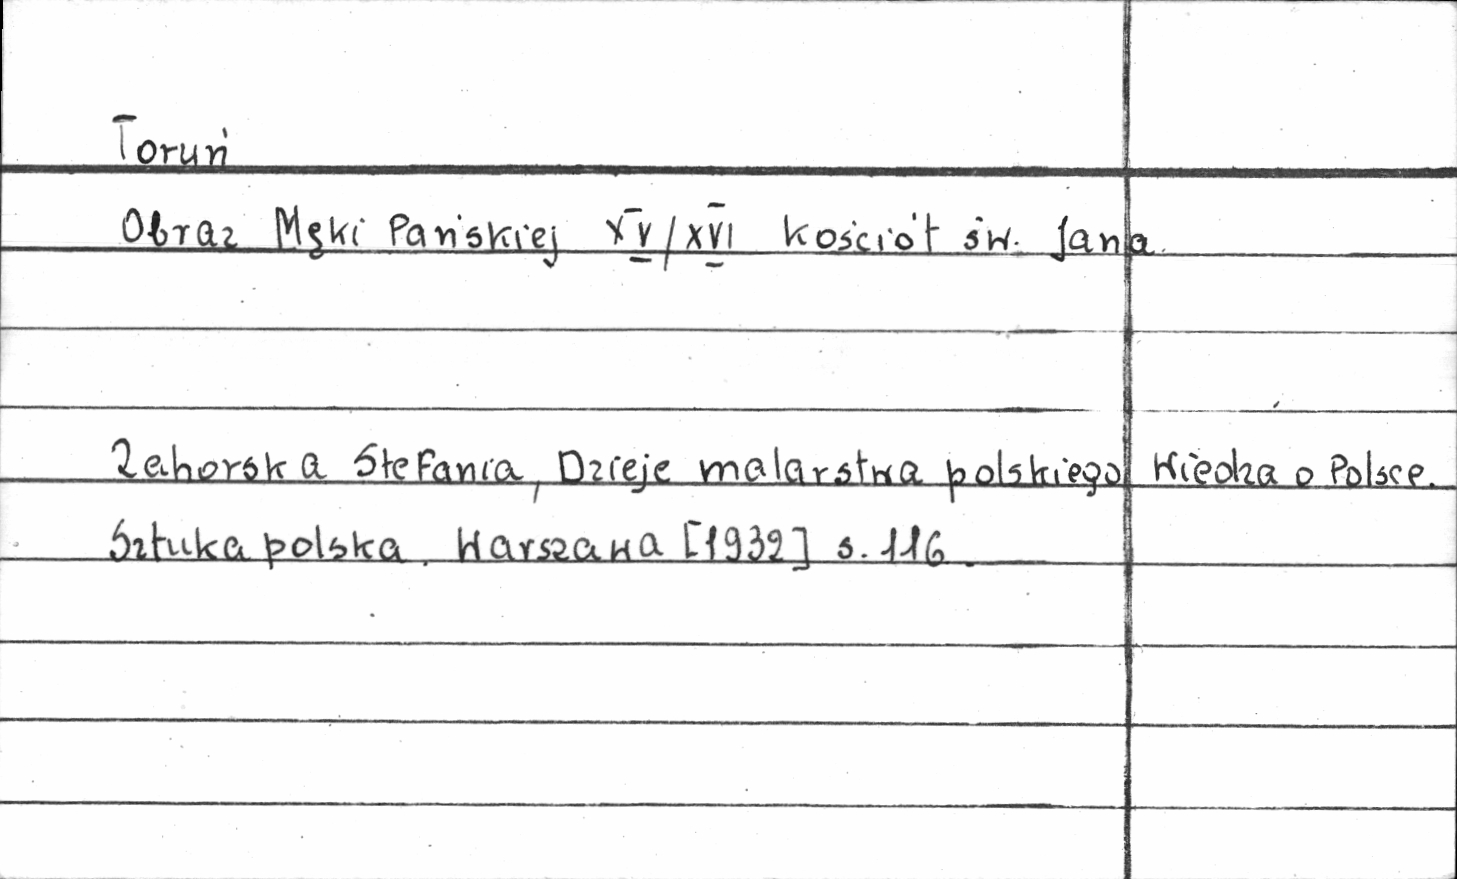 Toruń
Obraz Męki Pańskiej XV/XVI kościół św. Jana.
Zahorska Stefania, Dzieje malarstwa polskiego Wiedza o Polsce.
Sztuka polska. Warszawa [1932] s. 116.